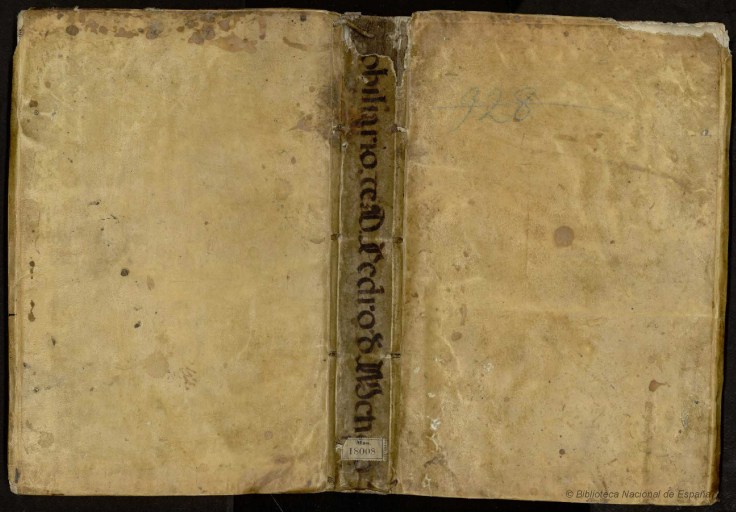 obiliario, de D. Pedro d Men
Mss.
18008
928
© Biblioteca Nacional de España